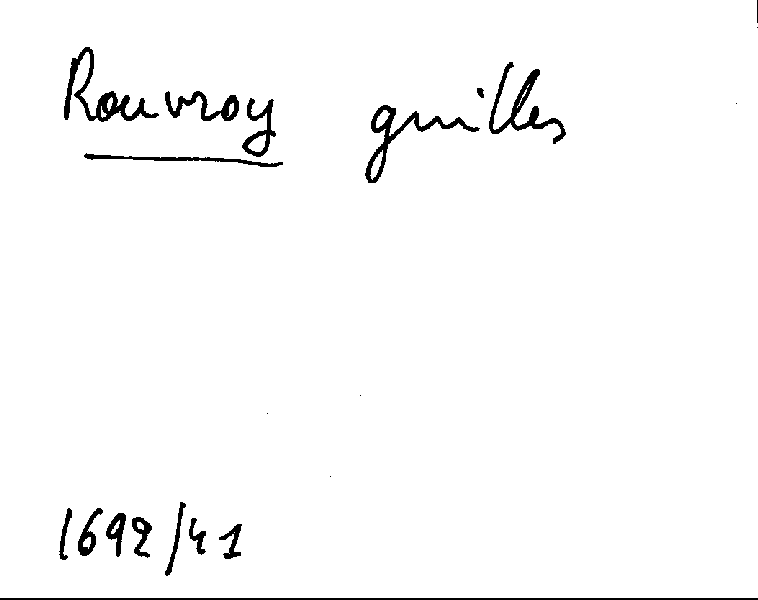 Rouvroy guilles
1692/41